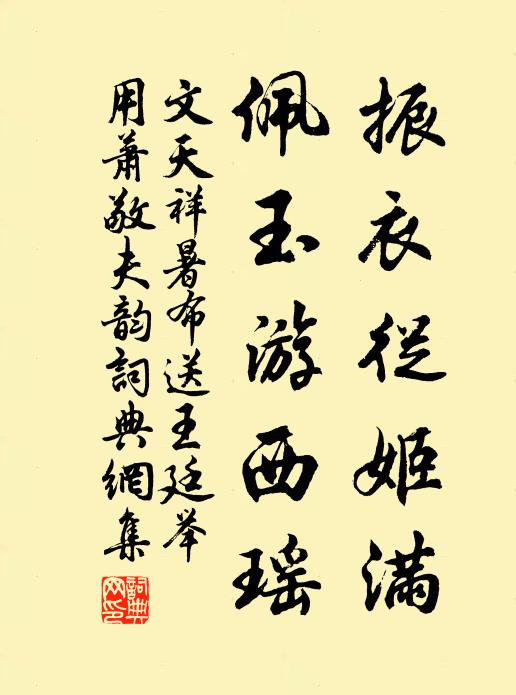 振衣從姬滿
佩玉游西瑶
文天祥暑布送王廷举
用蕭敬夫韵詞典網集
詞典网印